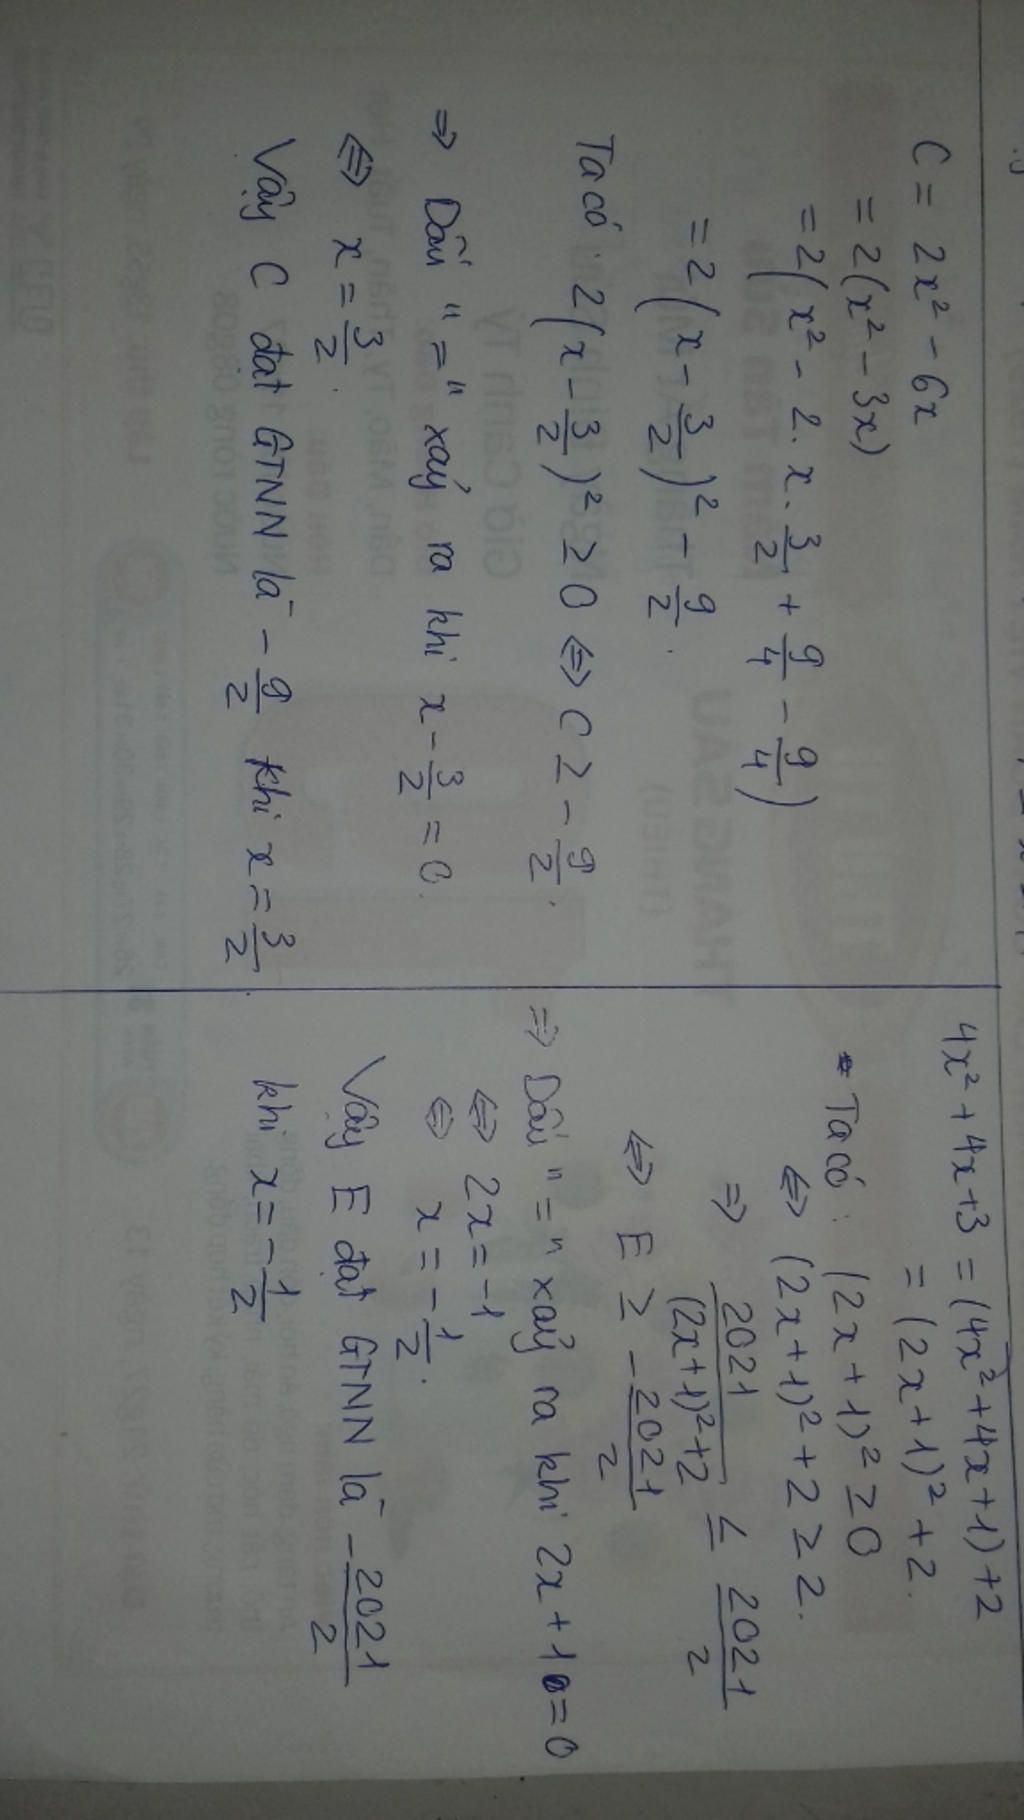 C = 2x² - 6x
= 2(x² - 3x)
= 2(x² - 2. x. 3/2 + 9/4 - 9/4)
= 2(x - 3/2)² - 9/2.
Ta có: 2(x - 3/2)² ≥ 0 ⇔ C ≥ - 9/2.
⇒ Dấu "=" xảy ra khi x - 3/2 = 0.
⇔ x = 3/2.
Vậy C đạt GTNN là - 9/2 khi x = 3/2
4x² + 4x + 3 = (4x² + 4x + 1) + 2
= (2x + 1)² + 2.
* Ta có: (2x + 1)² ≥ 0
⇔ (2x + 1)² + 2 ≥ 2.
⇒ 2021/((2x + 1)² + 2) ≤ 2021/2
⇔ E ≥ - 2021/2
⇒ Dấu "=" xảy ra khi 2x + 1 = 0
⇔ 2x = -1
⇔ x = - 1/2.
Vậy E đạt GTNN là - 2021/2
khi x = - 1/2